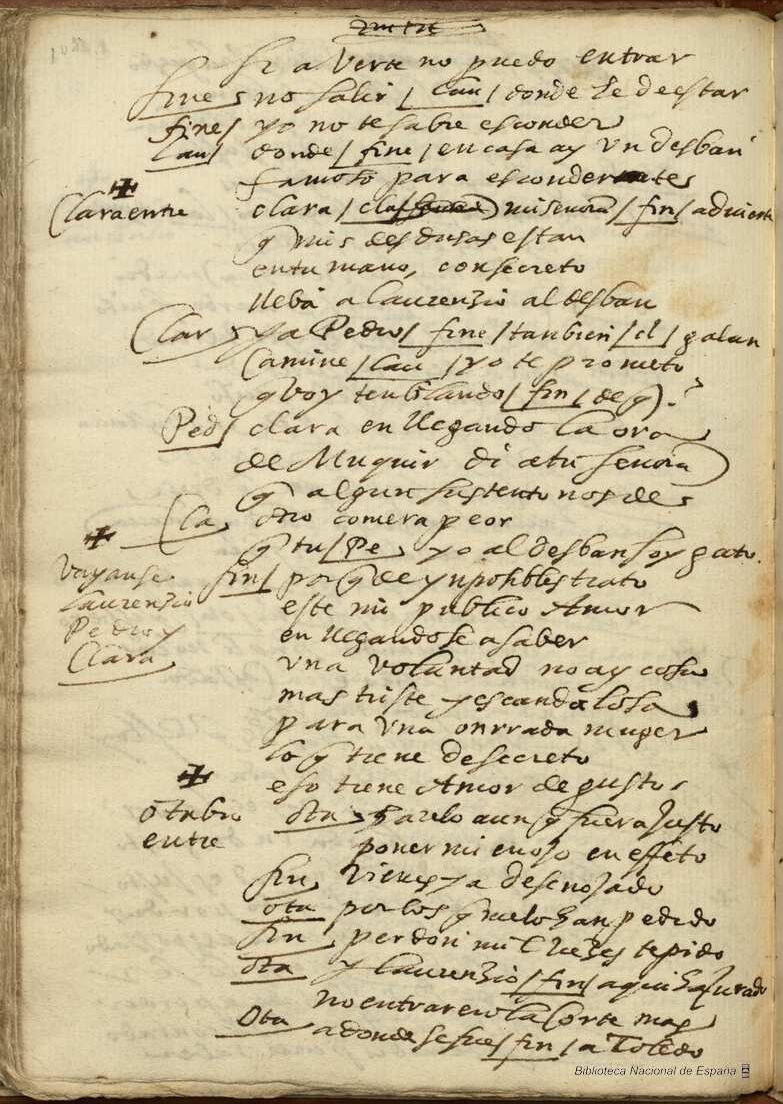 si a verte no puedo entrar
fine no salir / lau / donde he de estar
fine / yo no te sabre esconder
lau / donde / fine / en casa ay vn desban
famoso para esconderte
Clara entre
clara / cla / mi señora / fin / advierte
q mis desdichas estan
en tu mano, con secreto
lleba a laurenzio al desban
Clar ya Pedro / fine / tambien / cl / galan
camine / lau / yo te prometo
q voy tenblando / fin / de q?
Ped / clara en llegando la ora
de Muquir di a tu senora
q algun sustento nos de
Cla otro comera peor
q tu / Pe yo al desban soy gato.
Vayanse
laurenzio
Pedro y
Clara
fin / porq de ynposibles trato
este mi publico Amor
en llegandose a saber
vna voluntad no ay cosa
mas triste y escandalosa
para vna onrrada muger
lo q tiene de secreto
eso tiene Amor de gusto
otabio
entre
ota harelo aun q fuera Justo
poner mi enojo en effeto
fin vienes ya desenojado
ota por los q me lo han pedido
fin perdon mil vezes te pido
ota y laurenzio / fin / aqui ha Jurado
no entrar en la Corte mas
Ota adonde se fue / fin / a Toledo
Biblioteca Nacional de España